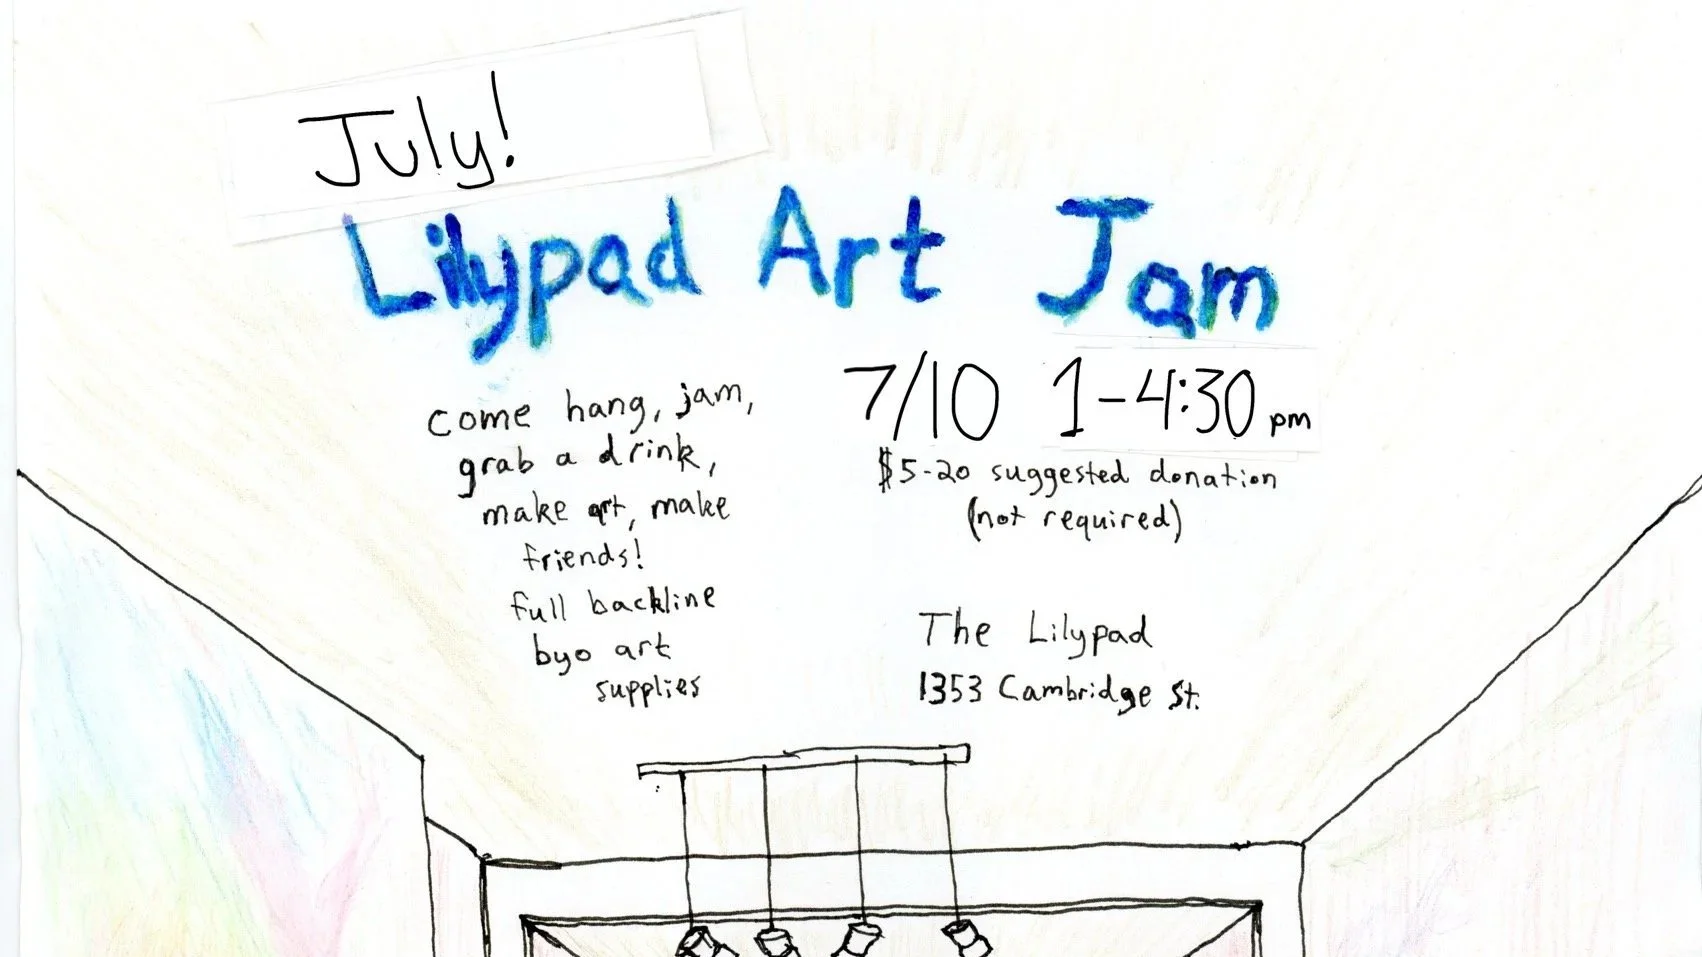 July!
Lilypad Art Jam
come hang, jam,
grab a drink,
make art, make
friends!
full backline
byo art
supplies
7/10 1-4:30 pm
$5-20 suggested donation
(not required)
The Lilypad
1353 Cambridge St.